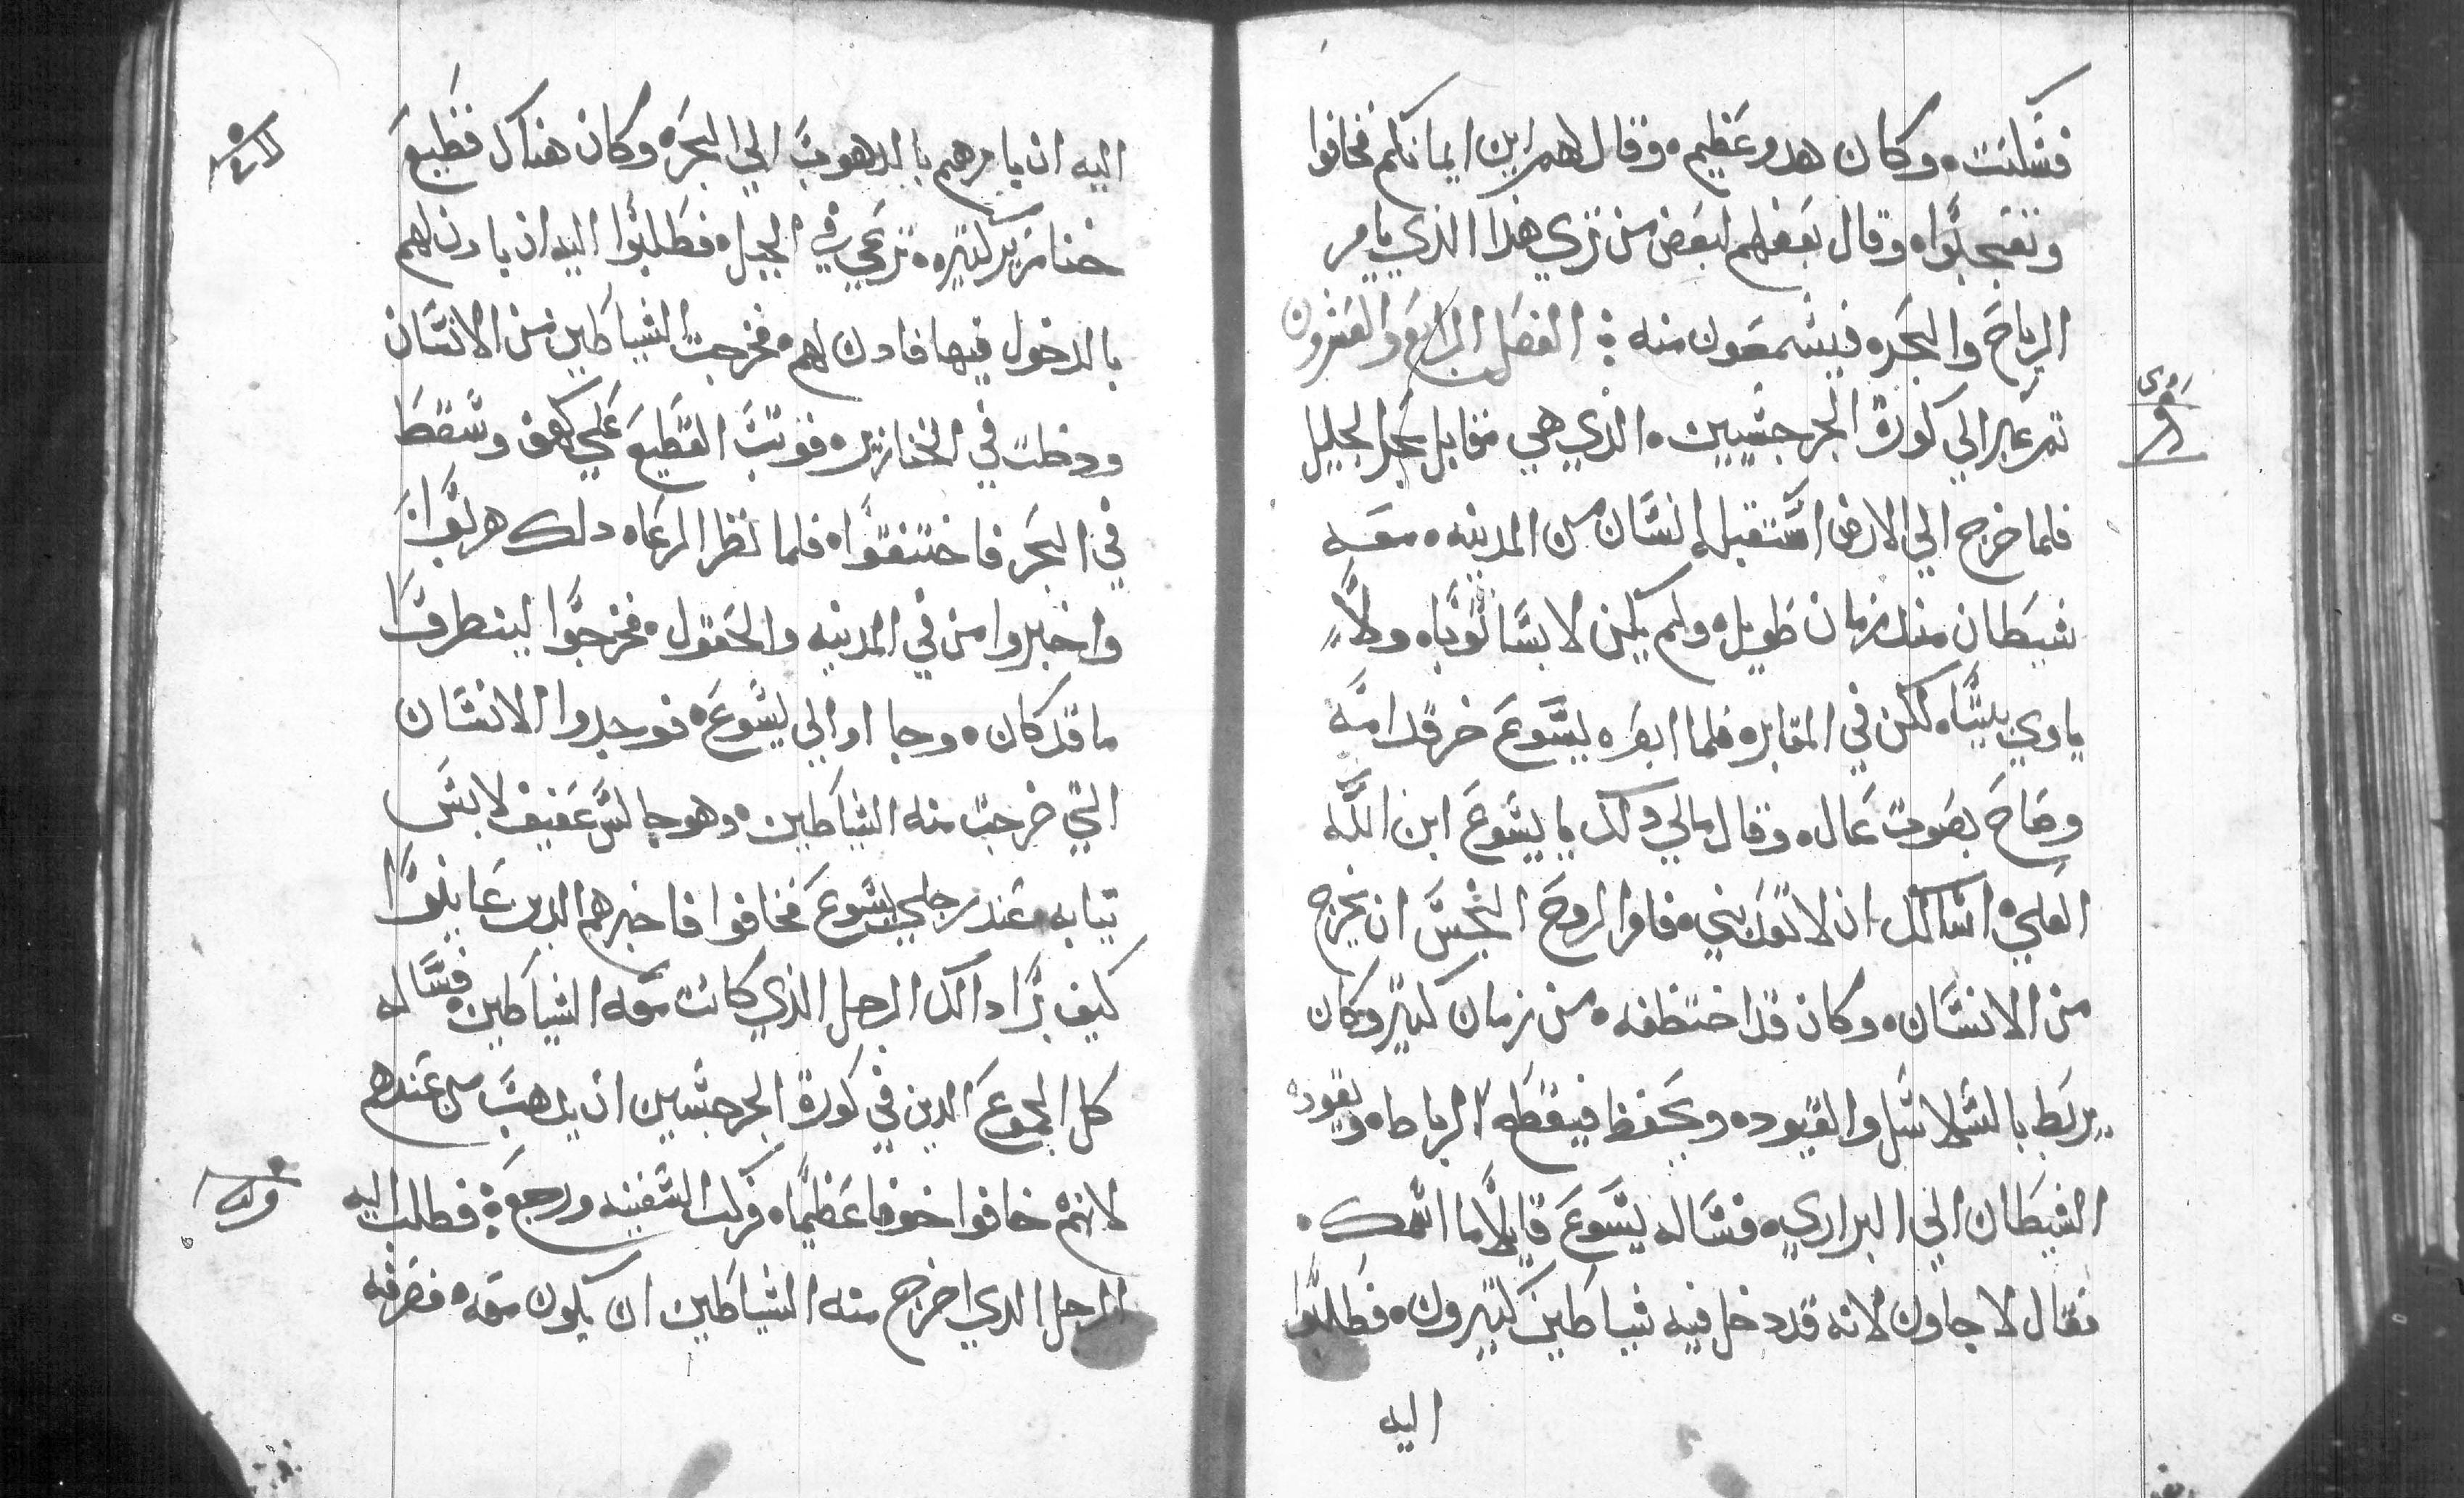 فسكنت. وكان هدو عظيم. وقال لهم اين ايمانكم فخافوا
وتعجبوا. وقال بعضهم لبعض من تري هذا الذي يامر
الرياح والبحر. فيسمعون منه : الفصل الرابع والعشرون
تم عبر الي كورة الجرجسيين. الذي هي مقابل بحر الجليل
فلما خرج الي الارض استقبله انسان من المدينه. معه
شيطان مند زمان طويل. ولم يكن لابسا ثوبا. ولا
ياوي بيتا. لكن في المقابر. فلما ابصره يسوع خر قدامه
وصاح بصوت عال. وقال مالي ولك يا يسوع ابن الله
العلي. اسالك ان لا تعدبني. فامر الروح النجس ان يخرج
من الانسان. وكان قد اختطفه. من زمان كتير وكان
يربط بالسلاسل والقيود. ويحفظ فيقطع الرباط. ويقوده
الشيطان الي البراري. فساله يسوع قايلا ما اسمك.
فقال لاجاون لانه قد دخل فيه شياطين كتيرون. فطلبوا
اليه
اليه ان يا مرهم بالدهوب الي البحر. وكان هناك قطيع
خنازير كتيره. ترعي في الجبل. فطلبوا اليه ان يادن لهم
بالدخول فيها فادن لهم. فخرجت الشياطين من الانسان
ودخلت في الخنازير. فوتب القطيع علي كهف وسقط
في البحر فاختنقوا. فلما نظر الرعاه دلك هربوا
واخبروا من في المدينه والحقول. فخرجوا لينظروا
ما قد كان. وجا اوا الي يسوع. فوجدوا الانسان
التي خرجت منه الشياطين. وهو جالس عفيف لابس
تيابه. عند رجلي يسوع فخافوا فاخبرهم الدين عاينوا
كيف برا داك الرجل الذي كانت معه الشياطين. فساله
كل الجموع الدين في كورة الجرجسيين ان يدهب من عندهم
لانهم خافوا خوفا عظيما. فركب السفينه ورجع : فطلب اليه
الرجل الدي اخرج منه الشياطين ان يكون معه. فصرفه